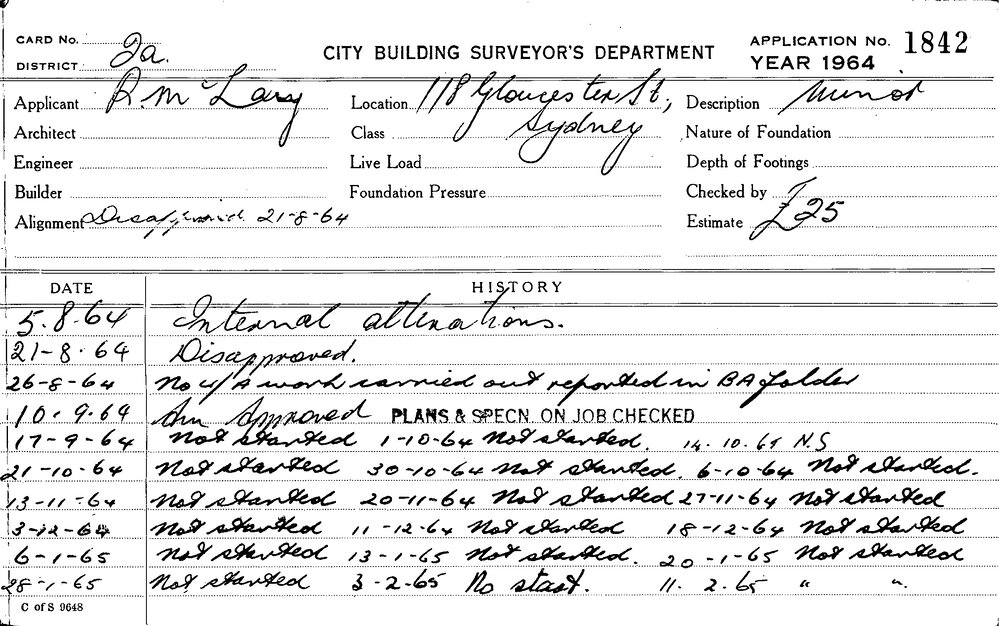 CARD No.
DISTRICT 2a.
CITY BUILDING SURVEYOR'S DEPARTMENT
APPLICATION No. 1842
YEAR 1964
Applicant R. McLary Location 118 Gloucester St, Sydney Description Minor
Architect Class Nature of Foundation
Engineer Live Load Depth of Footings
Builder Foundation Pressure Checked by
Alignment Disapproved 21-8-64 Estimate £25
DATE HISTORY
5.8.64 Internal altterations.
21-8.64 Disapproved.
26-8-64 No w/A work carried out reported in BA folder
10.9.64 Approved PLANS & SPECN. ON JOB CHECKED
17-9-64 Not started 1-10-64 Not started. 14.10.64 N.S
21-10-64 Not started 30-10-64 Not started. 6-10-64 Not started.
13-11-64 Not started 20-11-64 Not started 27-11-64 Not started
3-12-64 Not started 11-12-64 Not started 18-12-64 Not started
6-1-65 Not started 13-1-65 Not started. 20-1-65 Not started
28-1-65 Not started 3-2-65 No start. 11.2.65 " "
C of S 9648